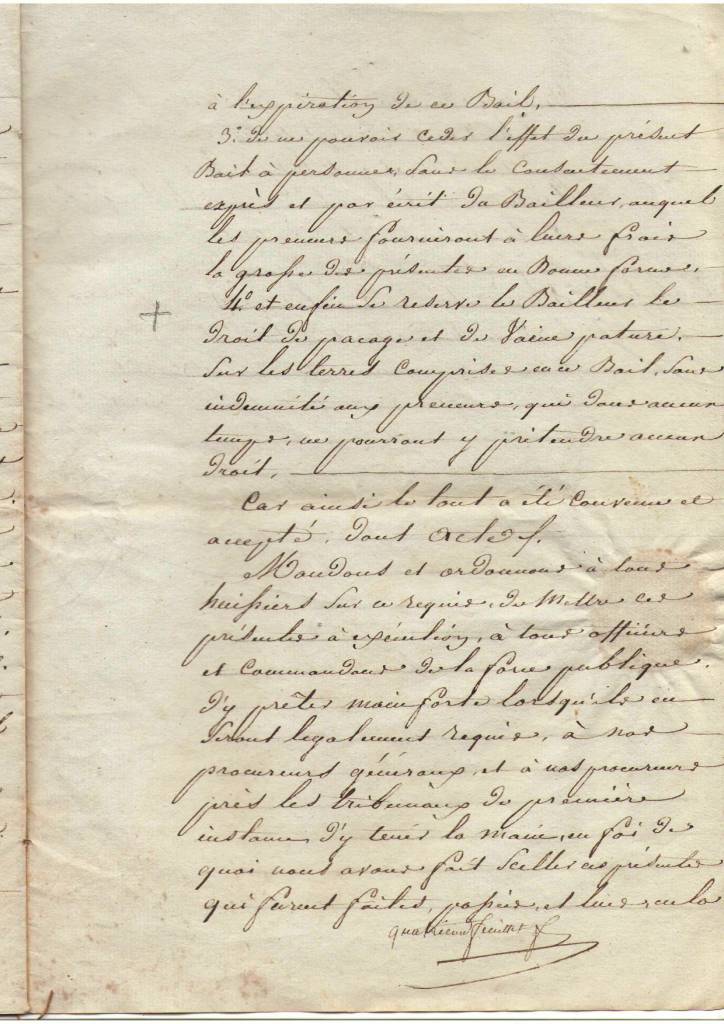 à l'expiration de ce Bail.
3.° de ne pouvoir ceder l'effet du présent
Bail à personnes, sans le consentement
exprès et par écrit du Bailleur, auquel
les preneurs fourniront à leurs frais
la grosse des présentes en Bonne forme.
4.° et enfin se reserve le Bailleur le
droit de pacage et de Vaine pature,
sur les terres comprises en ce Bail, sans
indemnité aux preneurs, qui dans aucun
temps, ne pourront y prétendre aucun
droit.
Car ainsi le tout a été convenu et
accepté. dont acte.
Mandons et ordonnons à tous
huissiers sur ce requis, de Mettre ces
présentes à exécution, à tous officiers
et commandans de la force publique,
d'y prêter main forte lorsqu'ils en
seront legalement requis, à nos
procureurs généraux, et à nos procureurs
près les tribunaux de première
instance, d'y tenir la main, en foi de
quoi nous avons fait sceller ces présentes
qui furent faites, passées, et lues en la
quatrieme feuillet